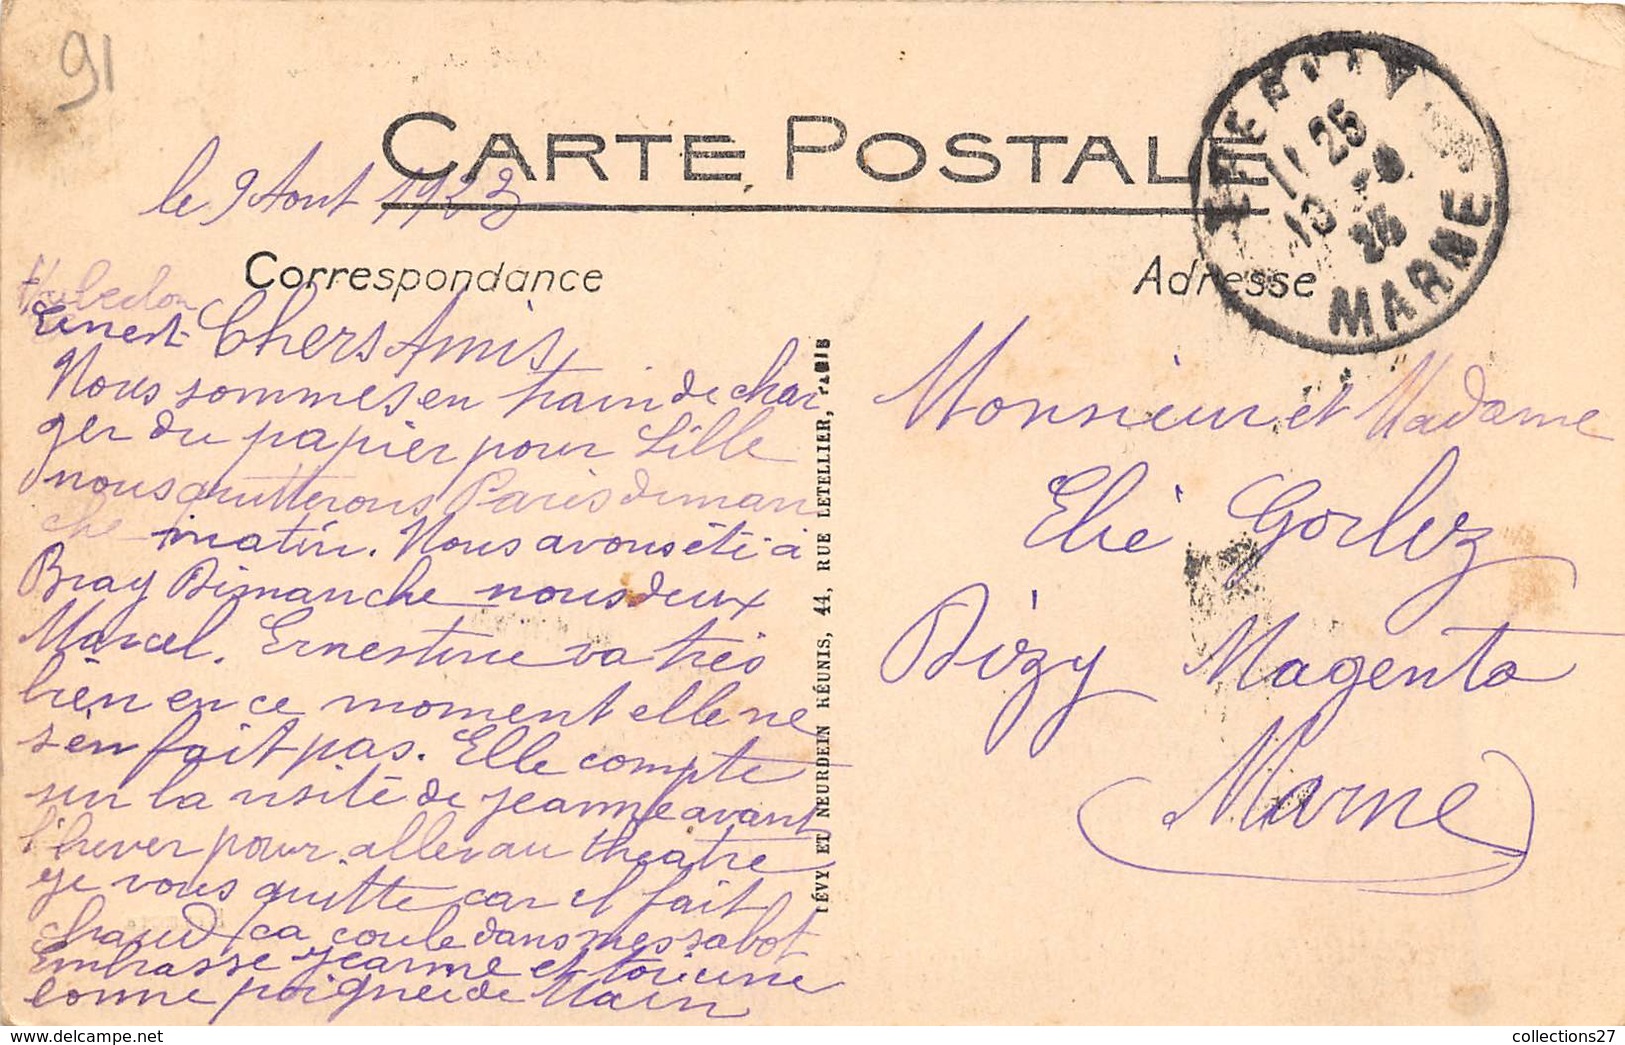 91
CARTE POSTALE
le 9 Aout 1923
Correspondance
Adresse
EPERNAY
11 25
10
MARNE
Ernest
Chers Amis,
Nous sommes en train de char
ger du papier pour Lille
nous quitterons Paris diman
che matin. Nous avons été à
Bray Dimanche nous deux
Marcel. Ernestine va très
bien en ce moment elle ne
s'en fait pas. Elle compte
sur la visité de jeanne avant
l'hiver pour aller au theatre
je vous quitte car il fait
chaud ça coule dans mes sabot
Embrasse jeanne et
bonne poignée de Main
LÉVY ET NEURDEIN RÉUNIS, 44, RUE LETELLIER, PARIS
Monsieur et Madame
Elie Gorlez
Dizy Magenta
Marne
collections27